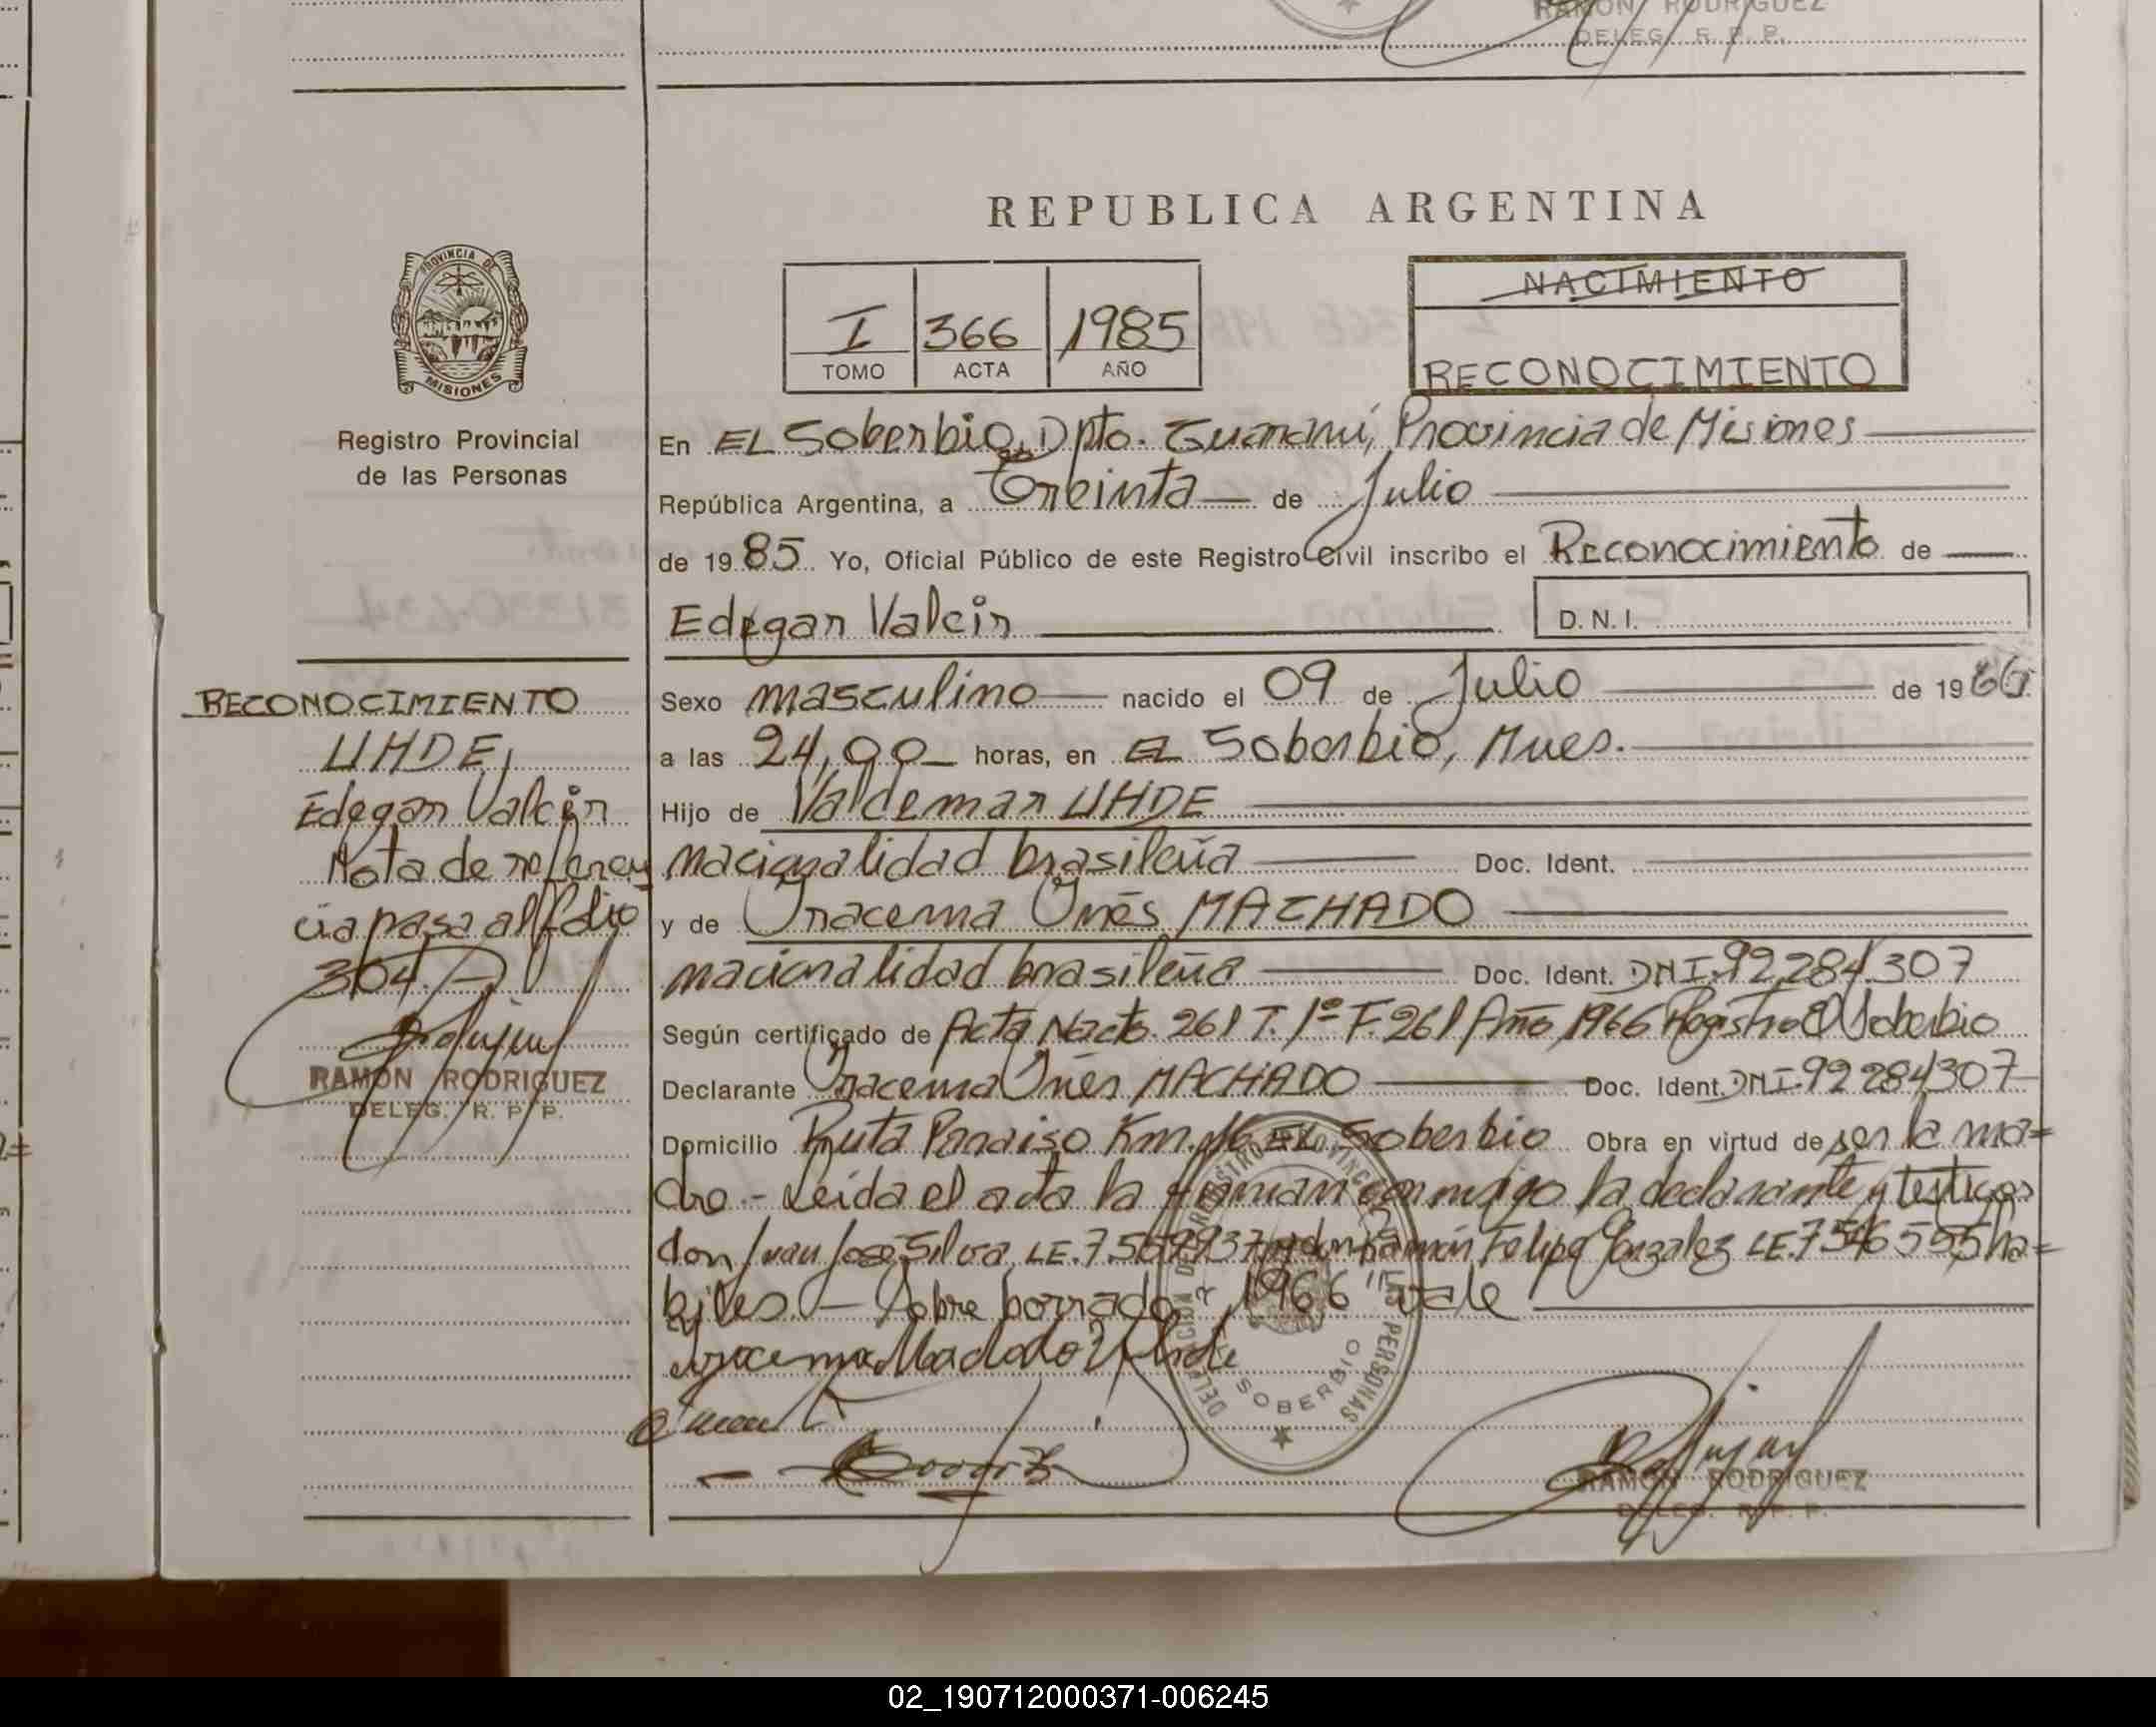 RAMON RODRIGUEZ
DELEG. R. P. P.
REPUBLICA ARGENTINA
PROVINCIA DE
MISIONES
Registro Provincial
de las Personas
I 366 1985
TOMO ACTA AÑO
NACIMIENTO
RECONOCIMIENTO
En EL Soberbio, Dpto. Guaraní, Provincia de Misiones
República Argentina, a Treinta de Julio
de 1985. Yo, Oficial Público de este Registro Civil inscribo el Reconocimiento de
Edegar Valcir D. N. I.
Sexo masculino nacido el 09 de Julio de 1966
a las 24,00 horas, en EL Soberbio, Mnes.
Hijo de Valdemar UHDE
nacionalidad brasileña Doc. Ident.
y de Iracema Inés MACHADO
nacionalidad brasileña Doc. Ident. DNI: 92.284.307
Según certificado de Acta Nacto. 261 T. 1º F. 261 Año 1966 Registro El Soberbio
Declarante Iracema Inés MACHADO Doc. Ident. DNI: 92 284307
Domicilio Ruta Paraiso Km. EL Soberbio Obra en virtud de ser la ma=
dre.- Leida el acta la firman conmigo la declarante y testigos
don Juan José Silva LE. y don Ramón Felipe Gonzalez LE. 7546555 ha=
biles.- Sobre borrado "1966" vale
RECONOCIMIENTO
UHDE,
Edegar Valcir
Nota de referen
cia pasa al folio
304.-
RAMON RODRIGUEZ
DELEG. R. P. P.
SOBERBIO
PERSONAS
RAMON RODRIGUEZ
DELEG. R. P. P.
02_190712000371-006245